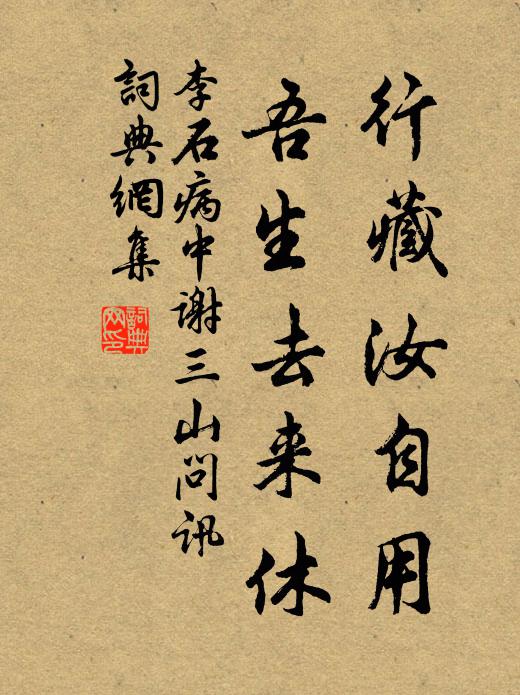 行藏汝自用
吾生去来休
李石病中谢三山问讯
词典網集
詞典网印